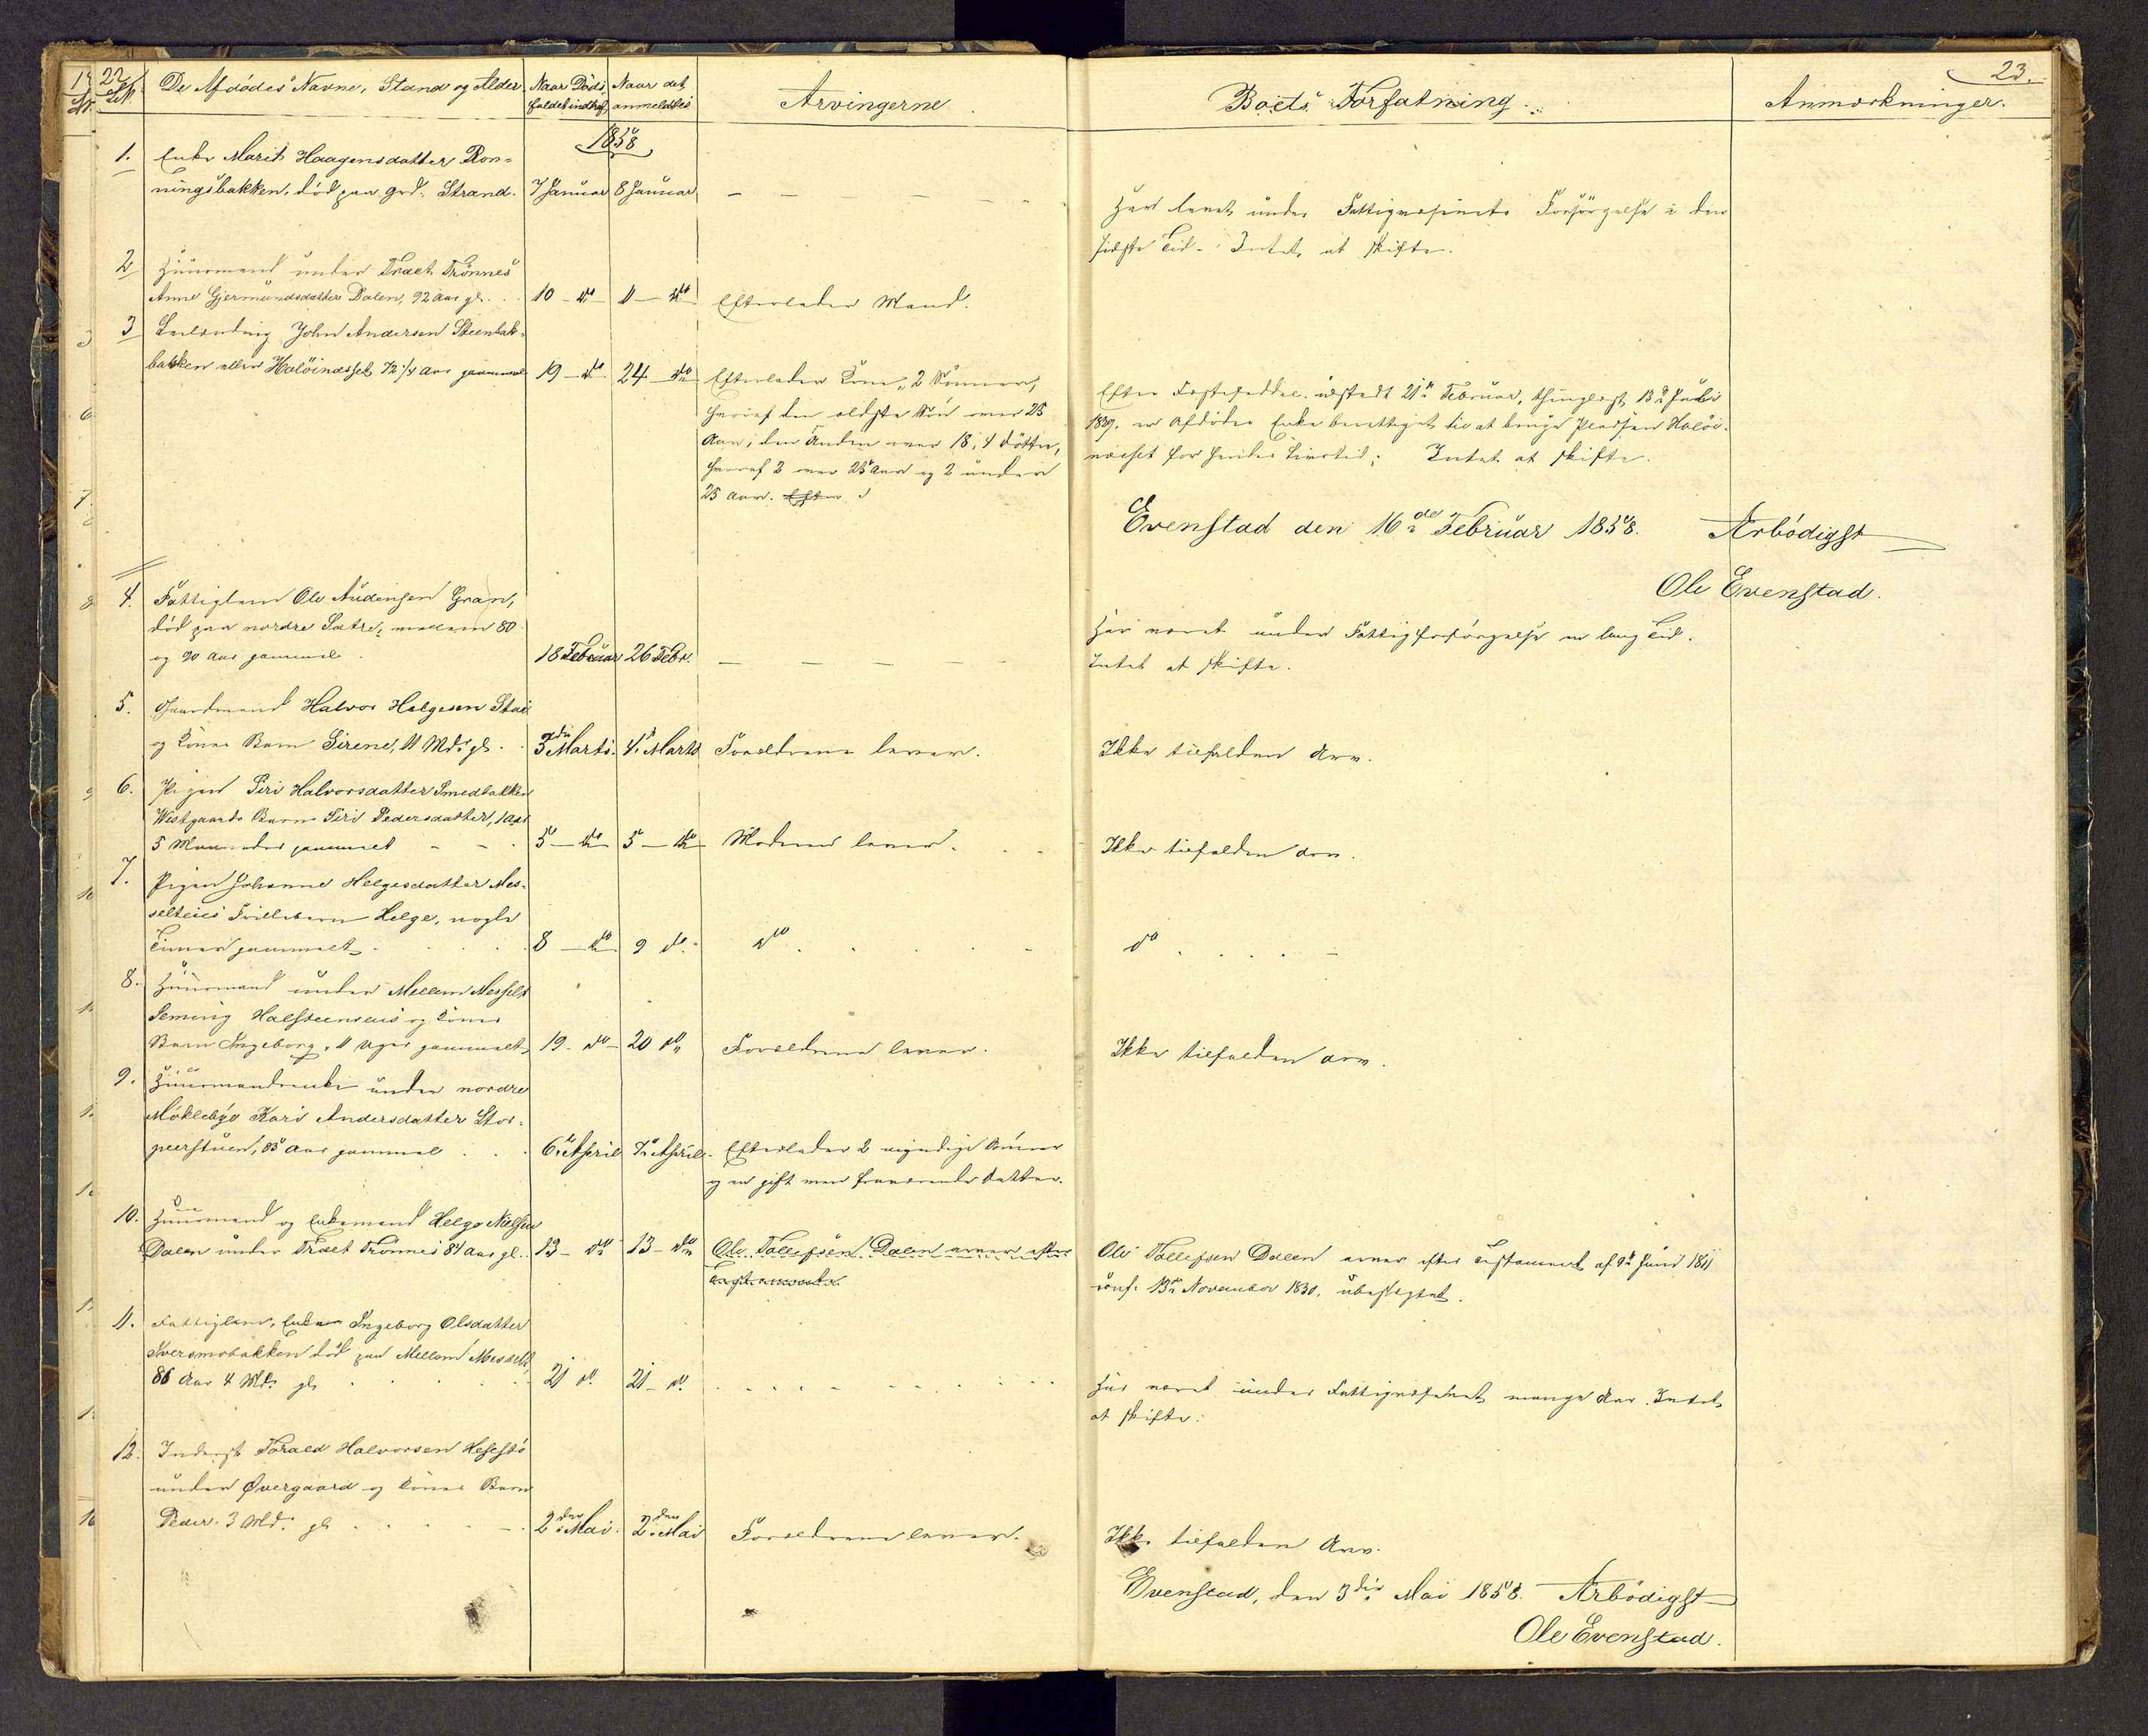 22
De Afdødes Navne, Stand og Alder
Naar Døds
faldet indtraf,
Naar det
anmeldtes
Arvingerne.
Boets Forfatning.
Anmærkninger.
23.
1858
1. Enke Marit Haagensdatter Ron=
ningsbakken, død paa grd. Strand. 7 Januar 8 Januar — — — —
Har levet under Fattigvæsenets Forsørgelse i den
sidste Tid. Intet at skifte.
2 Huusmand under Træet Trønnes
Anne Gjermundsdatter Dalen, 92 Aar gl. 10 - do - 11 - do Efterlader Mand.
3 Leilænding John Andersen Steenbak=
bakken eller Haløinæsset 72 1/4 Aar gammel 19 - do 24 - do Efterlader Kone, 2 Sønner,
hvoraf den ældste Søn over 25
Aar, den Anden over 18, 4 Døttre,
hvoraf 2 over 25 Aar og 2 under
25 Aar. Efter
Efter Fæsteseddel udstedt 21de Februar, thinglyst 13de Juli
1839, er Afdødes Enke berettiget til at bruge Pladsen Haløi=
næsset for hendes Livstid; Intet at skifte.
Evenstad den 16de Februar 1858. Ærbødigst
Ole Evenstad.
4. Fattiglem Ole Audensen Gran,
død paa nordre Sætre, mellem 80
og 90 Aar gammel. 18 Februar 26 Febr. — — — —
Har været under Fattigforsørgelse en lang Tid.
Intet at skifte.
5. Gaardmand Halvor Helgesen Stai
og Kones Barn Sirene, 11 Mdr gl. 3die Marts. 4de Marts Forældrene lever.
Ikke tilfalden Arv.
6. Pigen Siri Halvorsdatter Smedbakken
Westgaards Barn Siri Pedersdatter, 1 Aar
5 Maaneder gammel - - 5 - do 5 - do Moderen lever.
Ikke tilfalden Arv.
7. Pigen Johanne Helgesdatter Mes=
selteies Frillebarn Helge, nogle
Timer gammelt. 8 - do 9 do. do.
do
8. Huusmand under Mellem Messelt
Seming Halsteensens og Kones
Barn Ingeborg, 11 Uger gammelt, 19 - do - 20 do Forældrene lever.
Ikke tilfalden Arv.
9. Huusmandsenke under nordre
Møklebye Kari Andersdatter Stor=
peerstuen, 85 Aar gammel 6te April 7de April. Efterlader 2 myndige Sønner
og en gift men fraværende Datter.
10. Huusmand og Enkemand Helge Nielsen
Dalen under Træet Trønnes 84 Aar gl. 13 - do 13 - do Ole Tollefsen Dalen arver efter
Testamente.
Ole Tollefsen Dalen arver efter Testament af 9de Juni 1811
conf. 13de November 1830, ubesigtet.
11. Fattiglem, Enken Ingeborg Olsdatter
Sversmobakken død paa Mellem Messelt,
86 Aar 4 Md. gl. 21 do. 21 - do.
Har været under Fattigvæsenet mange Aar. Intet
at skifte.
12. Inderst Torald Halvorsen Hesstø
under Øvergaard og Kones Barn
Peder. 3 Md. gl. 2den Mai. 2den Mai Forældrene lever.
Ikke tilfalden Arv.
Evenstad, den 3die Mai 1858. Ærbødigst
Ole Evenstad.